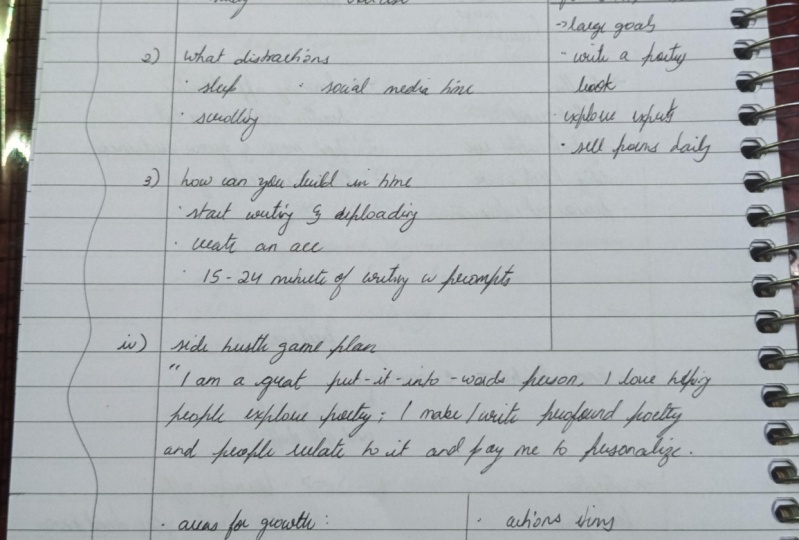 →large goals
2) what distractions
- write a poetry
book
· sleep · social media time
· scrolling
· explore experts
· sell poems daily
3) how can you build in time
· start writing & uploading
· create an acc
· 15-24 minute of writing w prompts
iv) side hustle game plan
"I am a great put-it-into-words person, I love helping
people explore poetry; I make/write profound poetry
and people relate to it and pay me to personalize.
· areas for growth:
· actions items